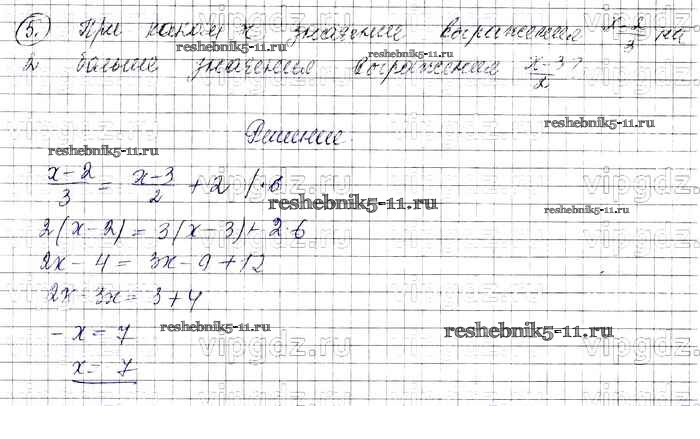 5. При каком x значение выражения x-2/3 на
2 больше значения выражения x-3/2?
reshebnik5-11.ru
reshebnik5-11.ru
Решение.
reshebnik5-11.ru
vipgdz.ru
x-2/3 = x-3/2 + 2 /·6
reshebnik5-11.ru
reshebnik5-11.ru
2(x-2) = 3(x-3) + 2·6
2x - 4 = 3x - 9 + 12
vipgdz.ru
2x - 3x = 3 + 4
- x = 7
reshebnik5-11.ru
reshebnik5-11.ru
vipgdz.ru
x = - 7